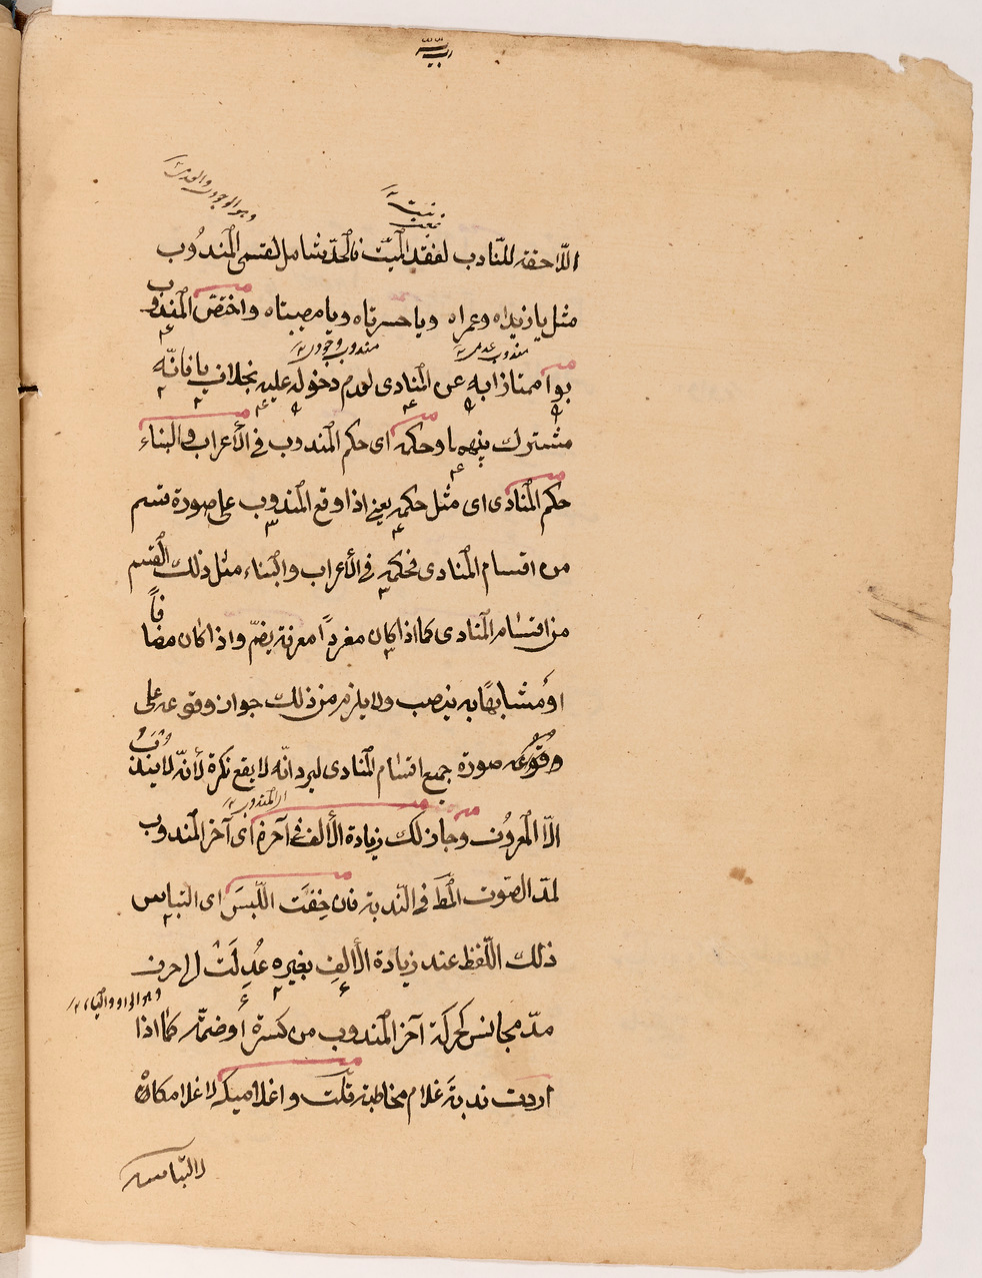 وهو الوجودى والعدمى
اللاحقة للنادب لفقد الميّت فالحدّ شامل لقسمى المندُوب
مثل يا زيداه وعمراه ويا حسرتاه ويا مصيبتاه واختصّ المندوب
مندوب عدمى مندوب وجودى
بوا ممتازا به عن المنادى لعدم دخوله عليه بخلاف يا فانّه
مشترك بينهما وحكمه اى حكم المندوب فى الأعراب والبناء
حكم المنادى اى مثل حكمه يعنى اذا وقع المندوب على صورة قسم
من اقسام المنادى فحكمه فى الأعراب والبناء مثل ذلك القسم
من اقسام المنادى كما اذا كان مفردًا معرفة يضمّ واذا كان مضافاً
او مشابهًا به ينصب ولا يلزم من ذلك جواز وقوعه على
وقوعه صورة جميع اقسام المنادى ليرد انّه لا يقع نكرة لأنّه لا يندب
اى المندوب
الّا المعروف وجاز لك زيادة الألف فى آخره اى آخر المندوب
لمدّ الصّوت المط فى النّدبة فان خِفتَ اللّبسَ اى التباس
ذلك اللّفظ عند زيادة الألِفِ بغيره عُدِلَتْ الى حرف
وهو الواو والياء
مدّ مجانس لحركة آخر المندوب من كسرة أو ضمّة كما اذا
اردت ندبةَ غلام مخاطبة قلت واغلامكيه لا غلامكاهْ
لالتباسه